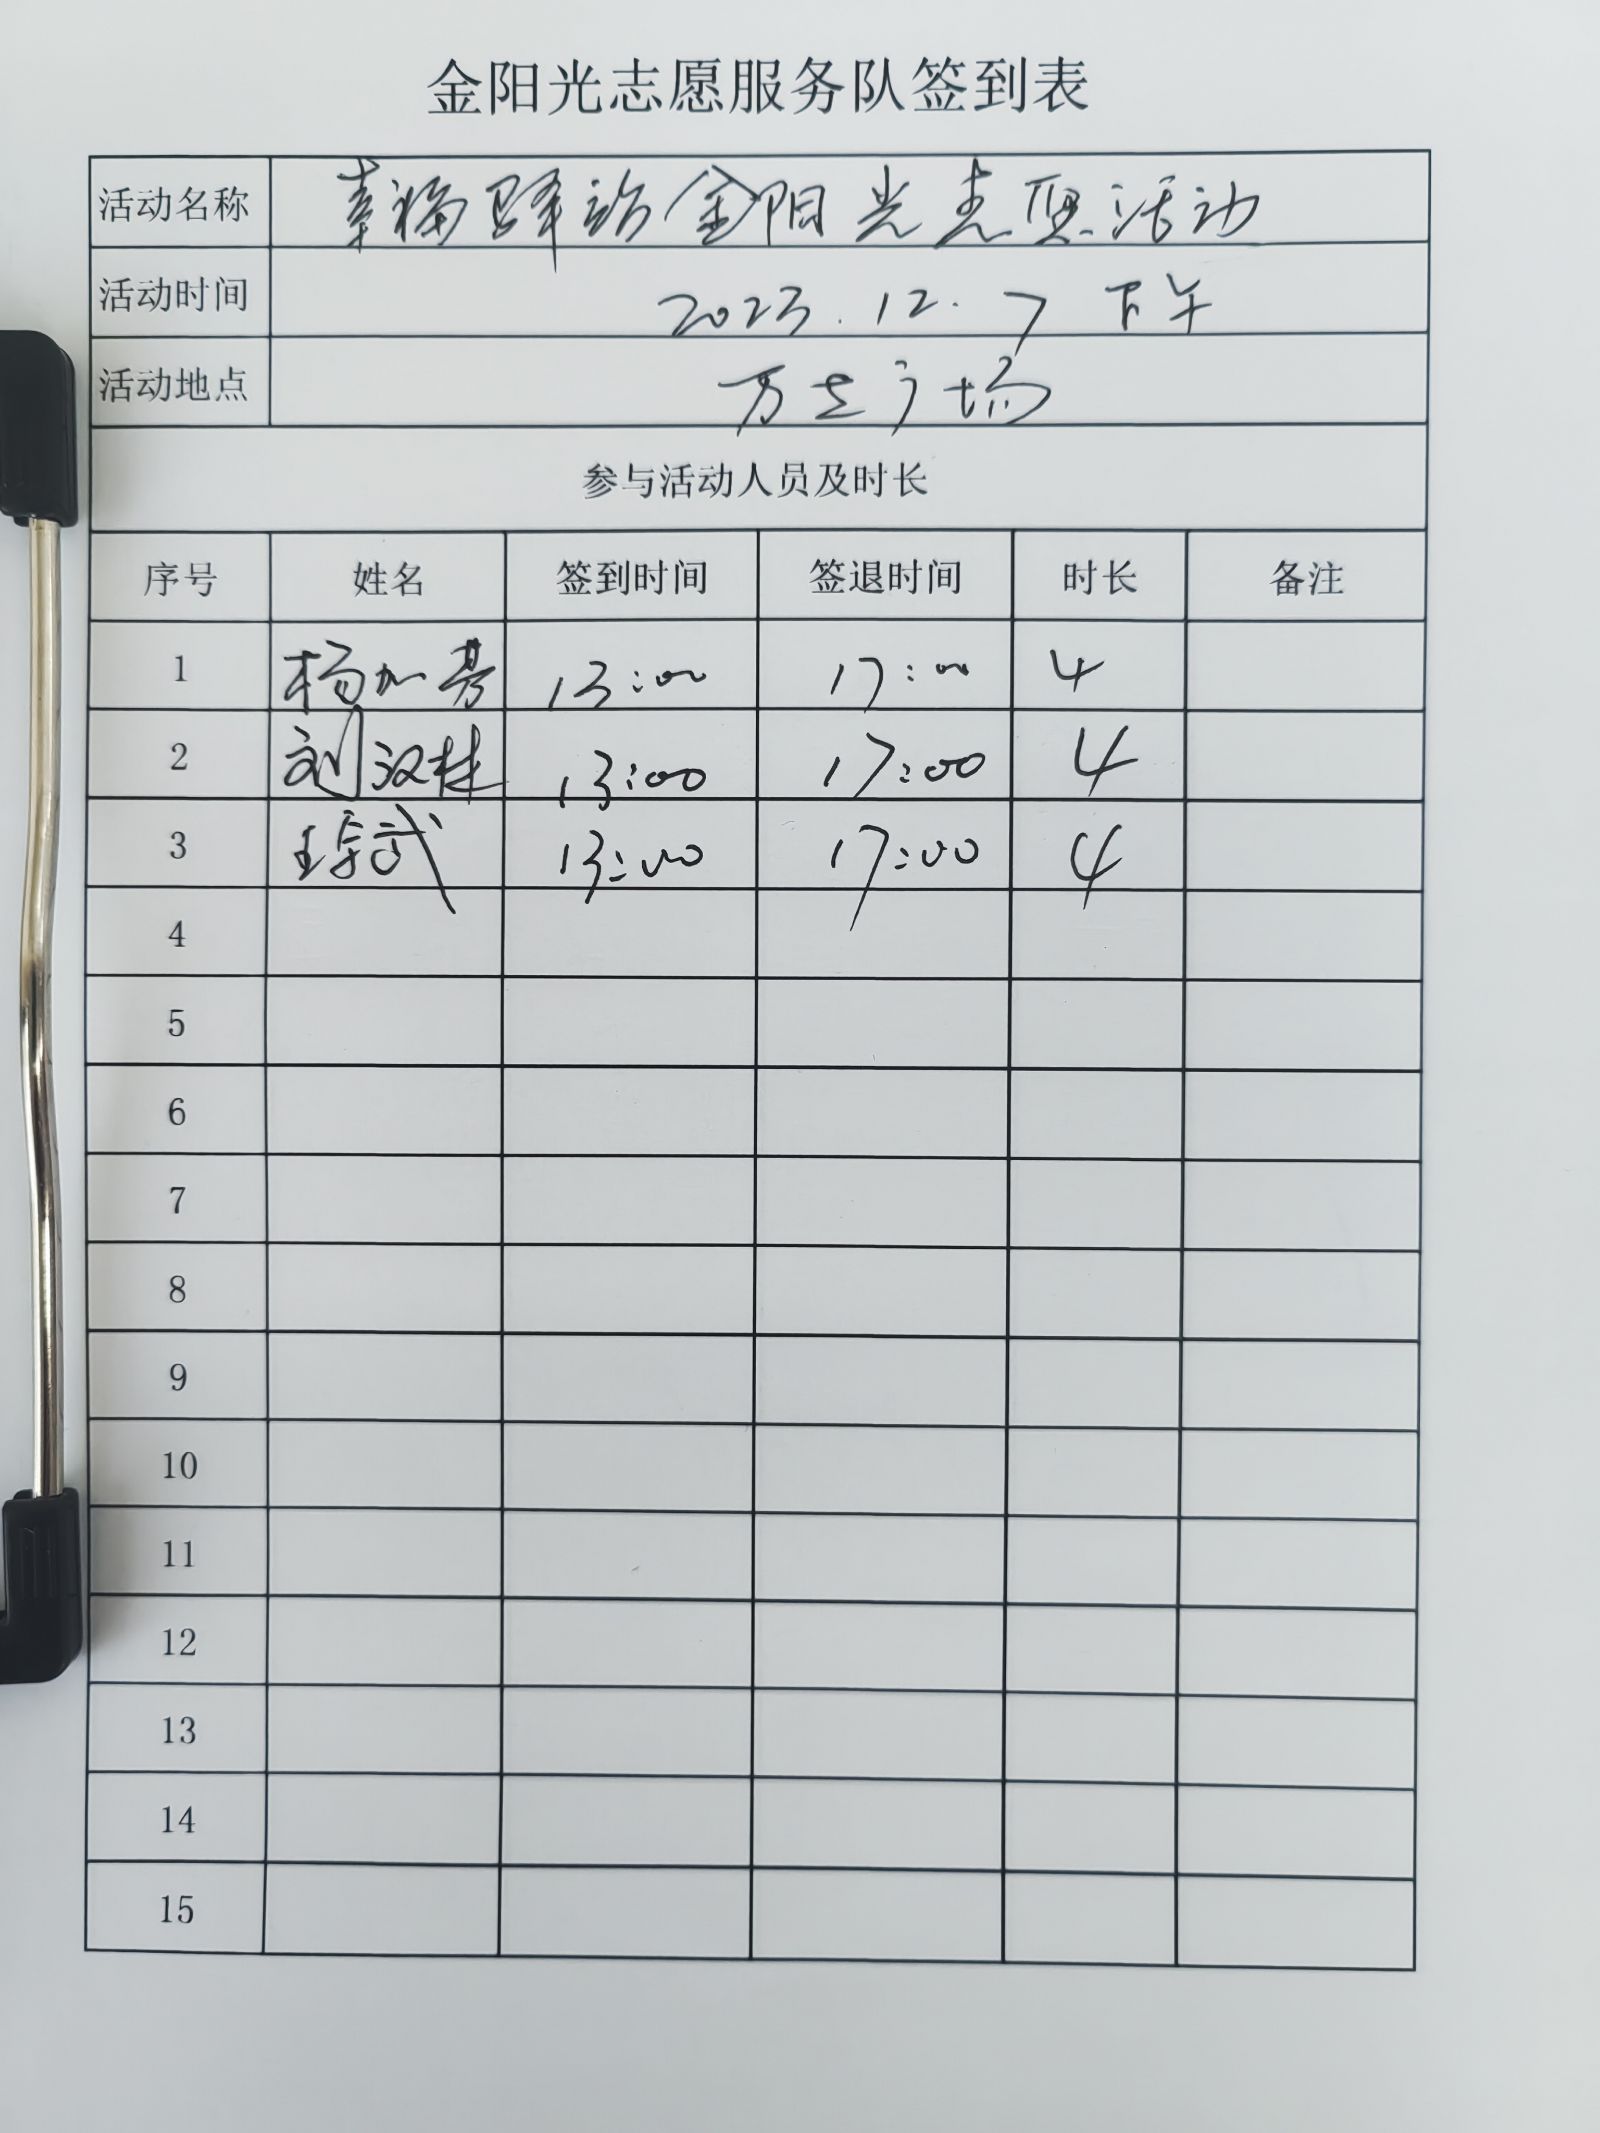 金阳光志愿服务队签到表
活动名称 幸福驿站金阳光志愿活动
活动时间 2023.12.7 下午
活动地点 万达广场
参与活动人员及时长
序号 姓名 签到时间 签退时间 时长 备注
1 杨加芳 13:00 17:00 4
2 刘汉桂 13:00 17:00 4
3 13:00 17:00 4
4
5
6
7
8
9
10
11
12
13
14
15